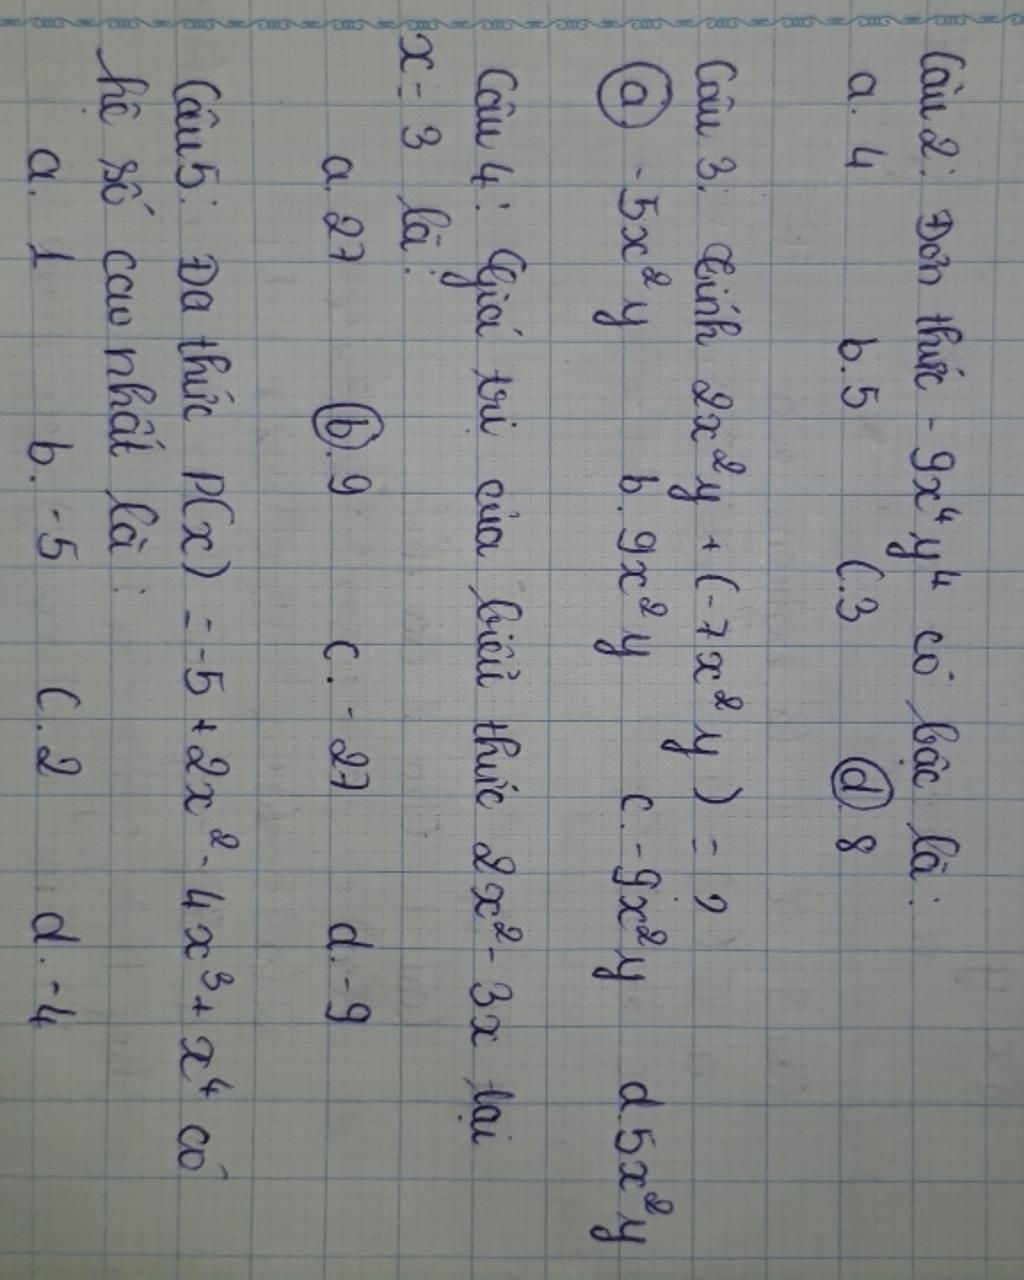 Câu 2: Đơn thức - 9x⁴y⁴ có bậc là:
a. 4 b. 5 c. 3 d. 8
Câu 3: Tính 2x²y + (-7x²y) = ?
a -5x²y b. 9x²y c. -9x²y d. 5x²y
Câu 4: Giá trị của biểu thức 2x² - 3x tại
x = 3 là:
a. 27 b. 9 c. -27 d. -9
Câu 5: Đa thức P(x) = -5 + 2x² - 4x³ + x⁴ có
hệ số cao nhất là:
a. 1 b. -5 c. 2 d. -4